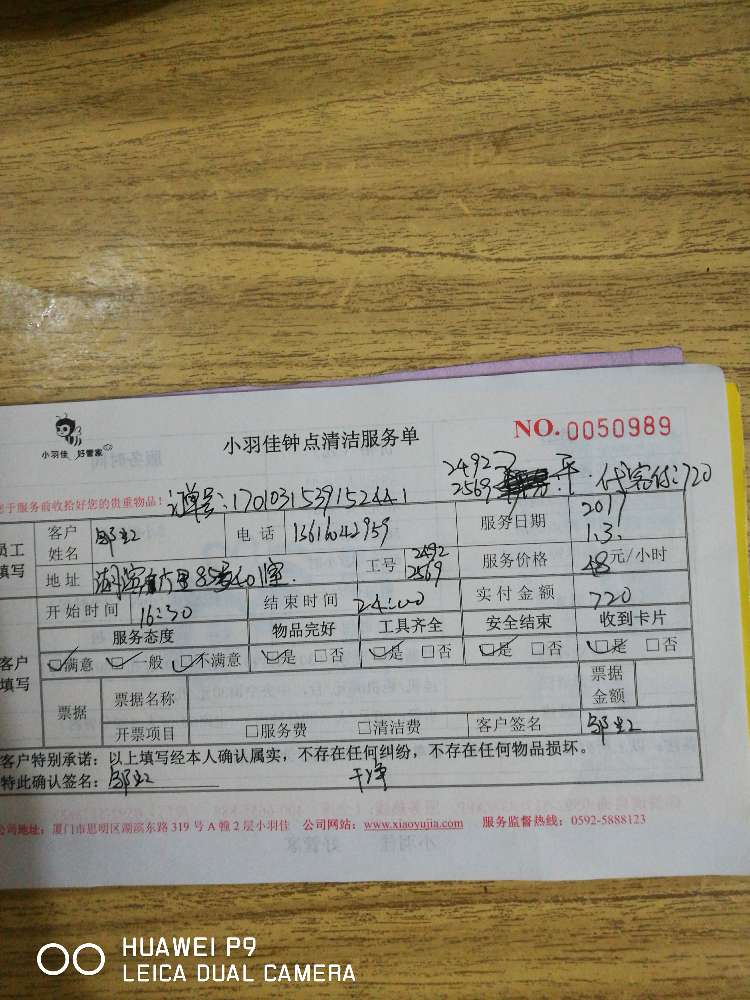 小羽佳 好管家
小羽佳钟点清洁服务单
NO. 0050989
于服务前收拾好您的贵重物品！
订单号：1701031539152441
2492
2569
平.代客付:720
员工填写
客户姓名 邹虹 电话 13616042959 服务日期 2017 1.3.
地址 85号401室. 工号 2492 2569 服务价格 48元/小时
开始时间 16:30 结束时间 24:00 实付金额 720
客户填写
服务态度 物品完好 工具齐全 安全结束 收到卡片
满意 一般 不满意 是 否 是 否 是 否 是 否
票据 票据名称 票据金额
开票项目 服务费 清洁费 客户签名 邹虹
客户特别承诺：以上填写经本人确认属实，不存在任何纠纷，不存在任何物品损坏。
特此确认签名：邹虹 干净
公司地址：厦门市思明区湖滨东路 319 号 A 幢 2 层小羽佳 公司网站：www.xiaoyujia.com 服务监督热线：0592-5888123
HUAWEI P9
LEICA DUAL CAMERA